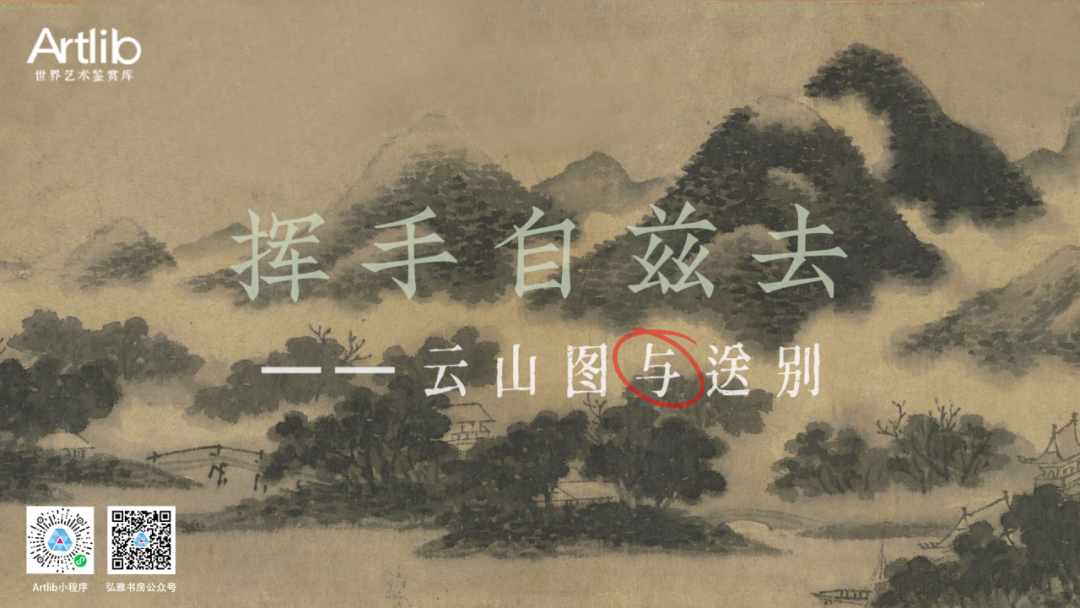 Artlib
世界艺术鉴赏库
挥手自兹去
——云山图与送别
Artlib小程序
弘雅书房公众号